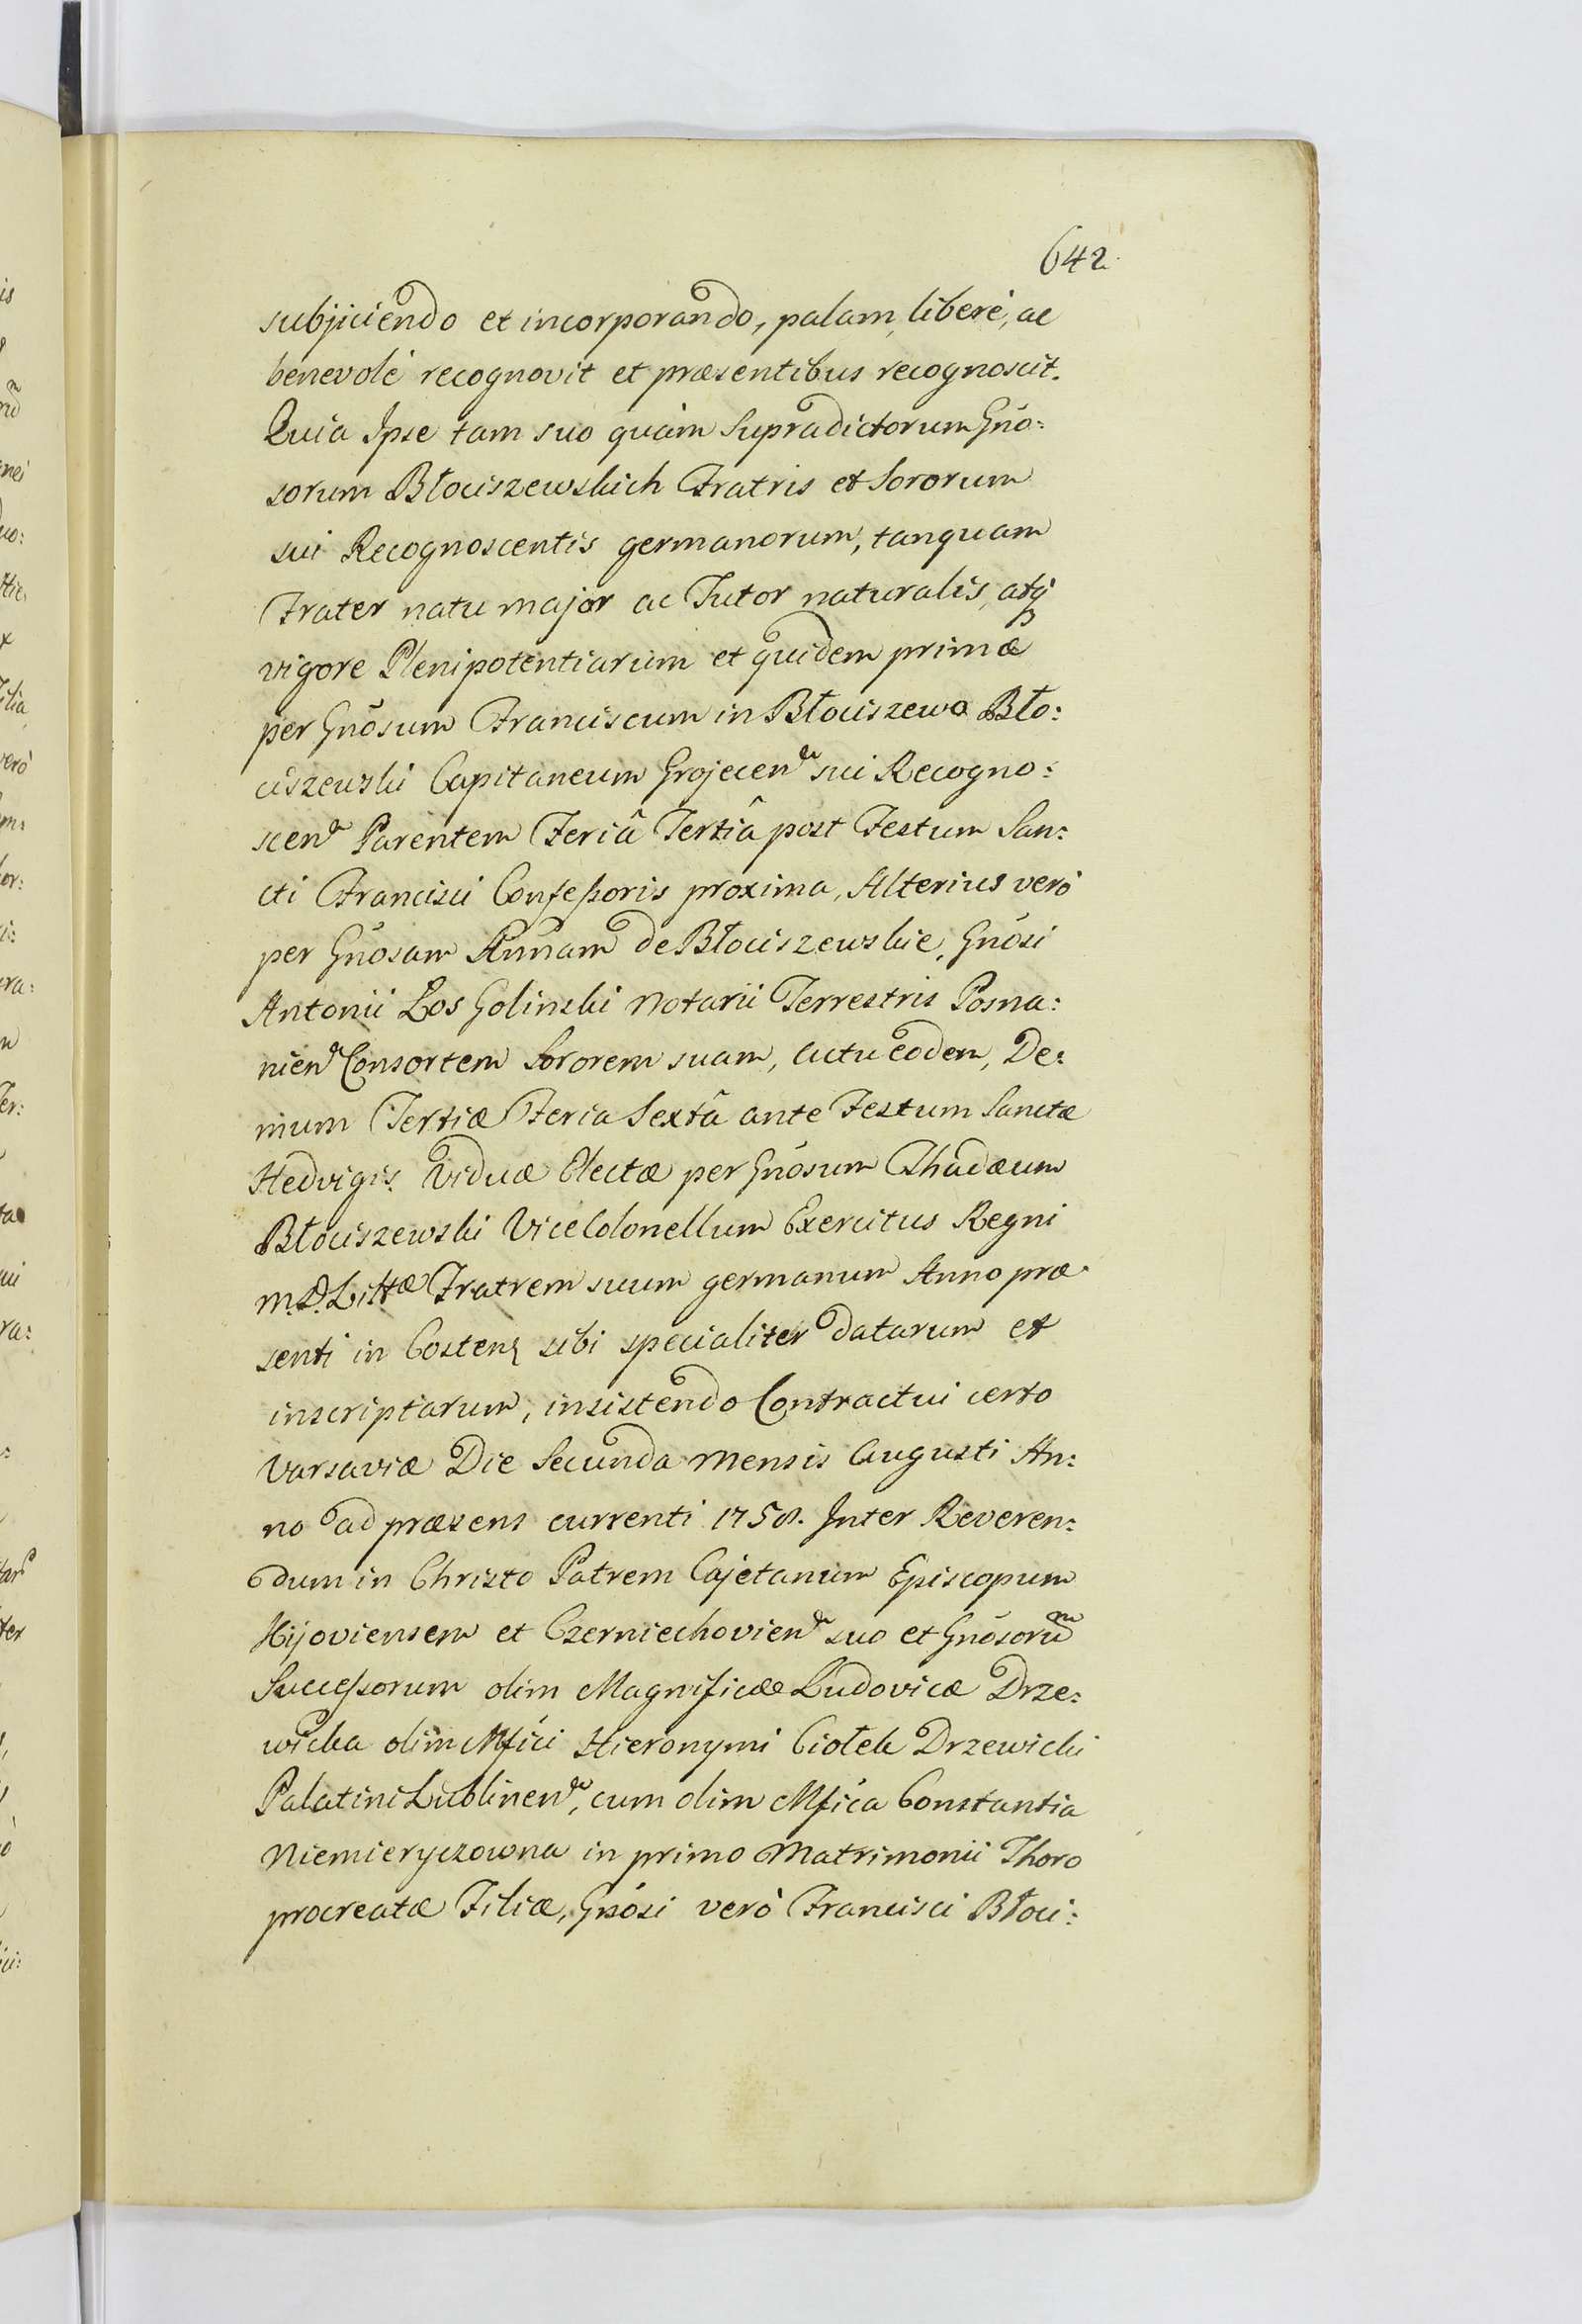 642
subjiciendo et incorporando, palam, liberè, ac
benevolè recognovit et præsentibus recognoscit.
Quia Ipse tam suo quàm Supradictorum Gño:
sorum Błociszewskich Fratris et Sororum
sui Recognoscentis germanorum, tanquam
Frater natu major ac Tutor naturalis, atq
vigore Plenipotentiarum et quidem primæ
per Gnõsum Franciscum in Błociszewo Bło:
ciszewski Capitaneum Grojecen. sui Recogno:
scen. Parentem Feriâ Tertiâ post Festum San:
cti Francisci Confeßoris proxima, Alterius verò
per Gnõsam Annam de Błociszewskie, Gnõsi
Antonii Los Golinski Notarii Terrestris Posna:
nien. Consortem Sororem suam, Actu eodem, De:
mum Tertiæ Feria Sextâ ante Festum Sanctæ
Hedvigis. Viduæ Electæ per Gnõsum Thadæum
Błociszewski ViceColonellum Exercitus Regni
M.D. Littæ Fratrem suum germanum Anno præ
senti in Costen. sibi specialiter datarum et
inscriptarum, insistendo Contractui certo
Varsaviæ Die Secunda Mensis Augusti An:
no ad præsens currenti 1758. Inter Reveren:
dum in Christo Patrem Cajetanum Episcopum
Kijoviensem et Czerniechovien. suo et Gnõsorum
Succeßorum olim Magnificæ Ludovicæ Drze:
wicka olim Mfici Hieronymi Ciołek Drzewicki
Palatini Lublinen., cum olim Mfica Constantia
Niemieryczowna in primo Matrimonii Thoro
procreatæ Filiæ, Gnõsi verò Francisci Błoci: